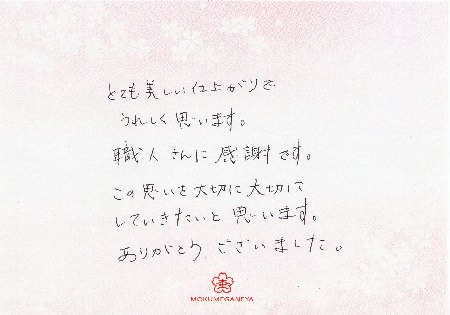 とても美しい仕上がりで
うれしく思います。
職人さんに感謝です。
この思いを大切に大切に
していきたいと思います。
ありがとうございました。
杢
MOKUMEGANEYA